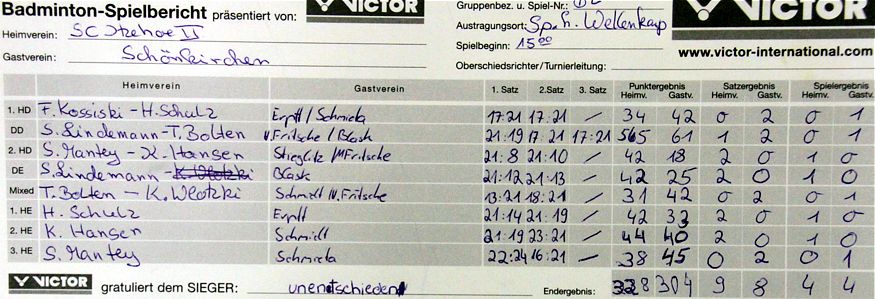 Badminton-Spielbericht präsentiert von: VICTOR
Gruppenbez. u. Spiel-Nr.:
VICTOR
Heimverein: SC Itzehoe II
Austragungsort: Sp.h. Wellenkamp
Spielbeginn: 15⁰⁰
Gastverein: Schönkirchen
www.victor-international.com
Oberschiedsrichter/Turnierleitung:
Heimverein Gastverein 1. Satz 2. Satz 3. Satz Punktergebnis Heimv. Gastv. Satzergebnis Heimv. Gastv. Spielergebnis Heimv. Gastv.
1. HD F. Kossiski - H. Schulz Erptl / Schmiela 17:21 17:21 / 34 42 0 2 0 1
DD S. Lindemann - T. Bolten V. Fritsche / Blask 21:19 17:21 17:21 61 1 2 0 1
2. HD S. Mantey - K. Hansen Stieglitz / M Fritsche 21:8 21:10 / 42 18 2 0 1 0
DE S. Lindemann - K. Wlotzki Blask 21:12 21:13 / 42 25 2 0 1 0
Mixed T. Bolten - K. Wlotzki Schmidt / V. Fritsche 13:21 18:21 / 31 42 0 2 0 1
1. HE H. Schulz Erptl 21:14 21:19 / 42 33 2 0 1 0
2. HE K. Hansen Schmidt 21:19 23:21 / 44 40 2 0 1 0
3. HE S. Mantey Schmiela 22:24 16:21 / 38 45 0 2 0 1
VICTOR gratuliert dem SIEGER: unentschieden Endergebnis: 328 304 9 8 4 4